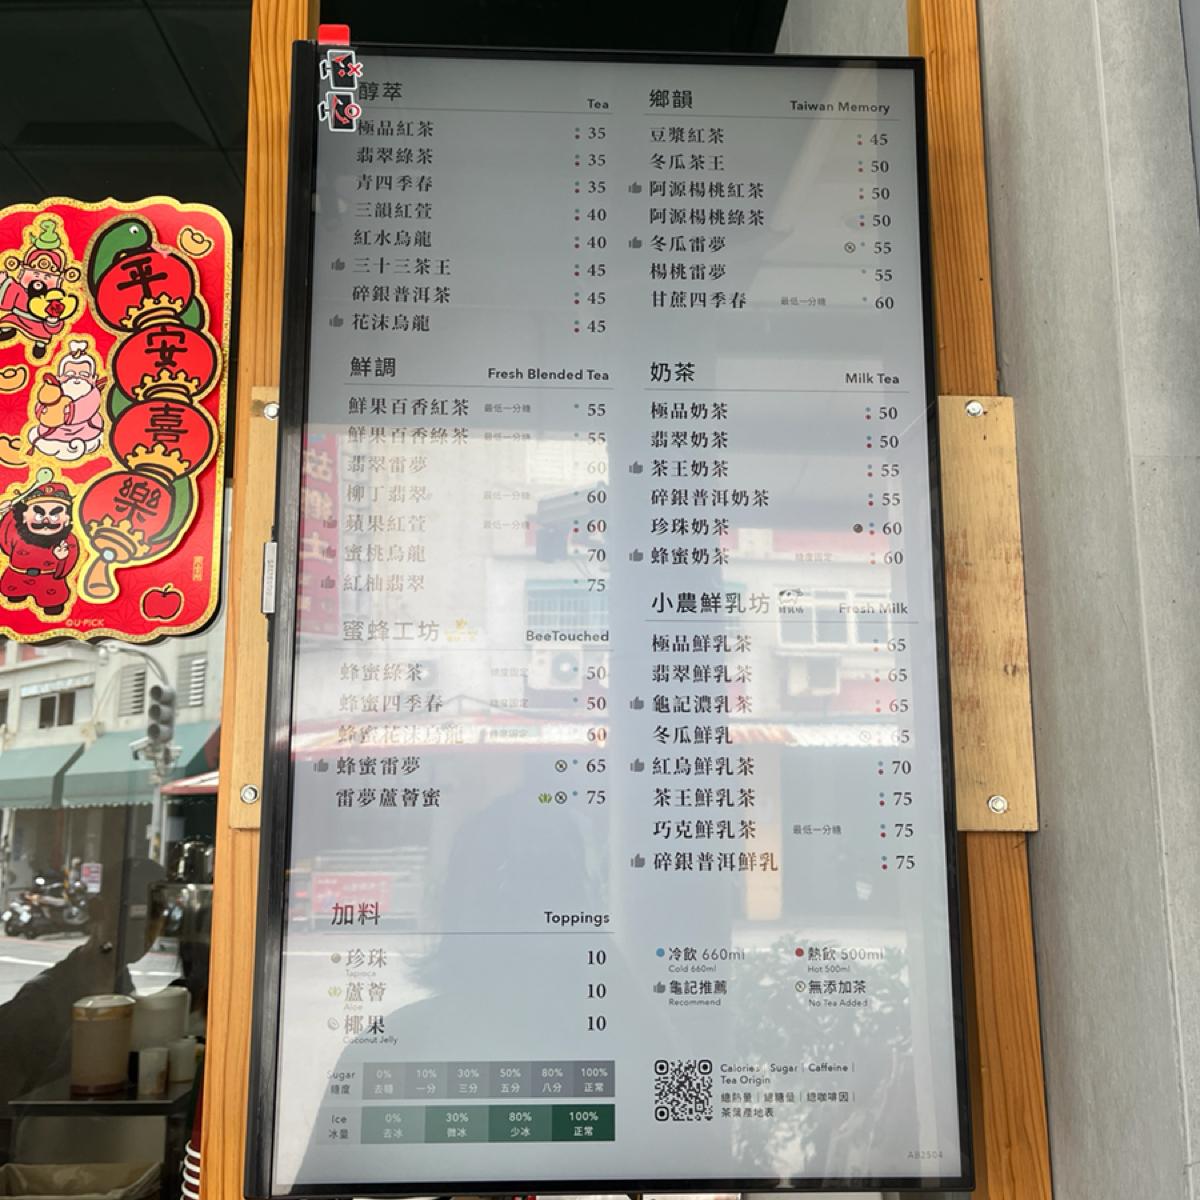 平
安
喜
樂
©U-PICK
醇萃 Tea
極品紅茶 35
翡翠綠茶 35
青四季春 35
三韻紅萱 40
紅水烏龍 40
三十三茶王 45
碎銀普洱茶 45
花沫烏龍 45
鮮調 Fresh Blended Tea
鮮果百香紅茶 最低一分糖 55
鮮果百香綠茶 最低一分糖 55
翡翠雷夢 60
柳丁翡翠 最低一分糖 60
蘋果紅萱 最低一分糖 60
蜜桃烏龍 70
紅柚翡翠 75
蜜蜂工坊 BeeTouched
蜂蜜綠茶 糖度固定 50
蜂蜜四季春 糖度固定 50
蜂蜜花沫烏龍 糖度固定 60
蜂蜜雷夢 65
雷夢蘆薈蜜 75
加料 Toppings
珍珠 10
Tapioca
蘆薈 10
Aloe
椰果 10
Coconut Jelly
Sugar 0% 10% 30% 50% 80% 100%
糖度 去糖 一分 三分 五分 八分 正常
Ice 0% 30% 80% 100%
冰量 去冰 微冰 少冰 正常
鄉韻 Taiwan Memory
豆漿紅茶 45
冬瓜茶王 50
阿源楊桃紅茶 50
阿源楊桃綠茶 50
冬瓜雷夢 55
楊桃雷夢 55
甘蔗四季春 最低一分糖 60
奶茶 Milk Tea
極品奶茶 50
翡翠奶茶 50
茶王奶茶 55
碎銀普洱奶茶 55
珍珠奶茶 60
蜂蜜奶茶 糖度固定 60
小農鮮乳坊 Fresh Milk
極品鮮乳茶 65
翡翠鮮乳茶 65
龜記濃乳茶 65
冬瓜鮮乳 65
紅烏鮮乳茶 70
茶王鮮乳茶 75
巧克鮮乳茶 最低一分糖 75
碎銀普洱鮮乳 75
冷飲 660ml 熱飲 500ml
Cold 660ml Hot 500ml
龜記推薦 無添加茶
Recommend No Tea Added
Calories | Sugar | Caffeine |
Tea Origin
總熱量 | 總糖量 | 總咖啡因 |
茶葉產地表
AB2504